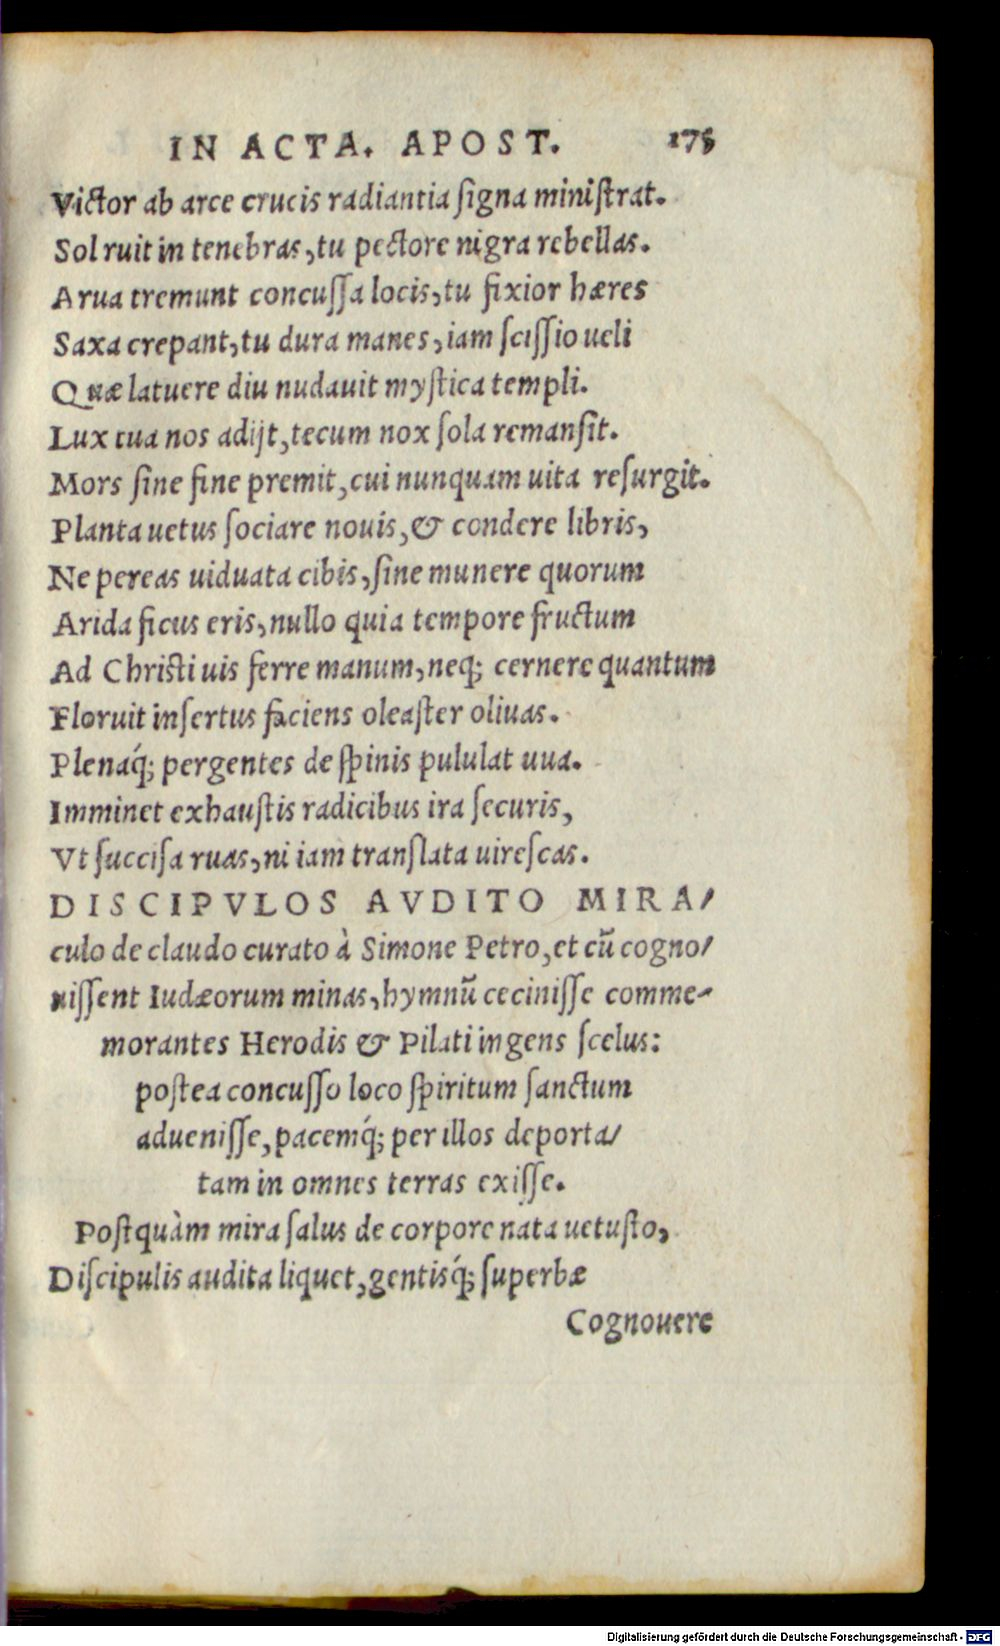 IN ACTA. APOST. 175
Victor ab arce crucis radiantia ſigna miniſtrat.
Sol ruit in tenebras, tu pectore nigra rebellas.
Arua tremunt concuſſa locis, tu fixior hæres
Saxa crepant, tu dura manes, iam ſciſſio ueli
Quæ latuere diu nudauit myſtica templi.
Lux tua nos adijt, tecum nox ſola remanſit.
Mors ſine fine premit, cui nunquam uita reſurgit.
Planta uetus ſociare nouis, & condere libris,
Ne pereas uiduata cibis, ſine munere quorum
Arida ficus eris, nullo quia tempore fructum
Ad Chriſti uis ferre manum, neq; cernere quantum
Floruit inſertus faciens oleaſter oliuas.
Plenaq́; pergentes de ſpinis pululat uua.
Imminet exhauſtis radicibus ira ſecuris,
Vt ſucciſa ruas, ni iam tranſlata uireſcas.
DISCIPVLOS AVDITO MIRA/
culo de claudo curato à Simone Petro, et cū cogno/
uiſſent Iudæorum minas, hymnū ceciniſſe comme-
morantes Herodis & Pilati ingens ſcelus:
poſtea concuſſo loco ſpiritum ſanctum
adueniſſe, pacemq́; per illos deporta/
tam in omnes terras exiſſe.
Poſtquàm mira ſalus de corpore nata uetuſto,
Diſcipulis audita liquet, gentisq́; ſuperbæ
Cognouere
Digitalisierung gefördert durch die Deutsche Forschungsgemeinschaft - DFG